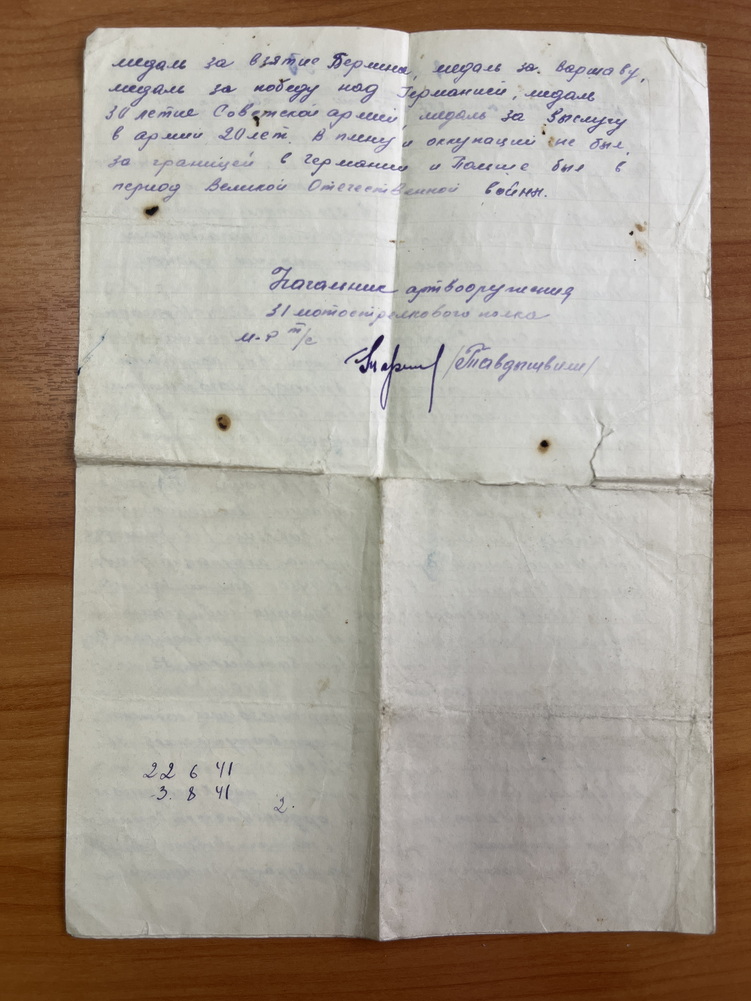 медаль за взятие Берлина, медаль за Варшаву,
медаль за победу над Германией, медаль
30 летие Советской армии, медаль за Выслугу
в армии 20 лет. В плену и оккупации не был,
за границей в Германии и Польше был в
период Великой Отечественной войны.
Начальник артвооружения
31 мотострелкового полка
м-р т/с
/Тавдишвили/
22 6 41
3. 8 41
2.